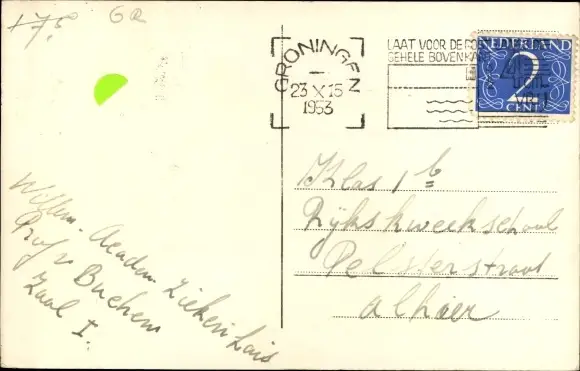 +75 GR
GRONINGEN
23 X 15
1953
LAAT VOOR DE PO
GEHELE BOVENKA
NEDERLAND
2
CENT
Klas 1 b
Rijkskweekschool
Pelsterstraat
alhier
Willem - Academ. Ziekenhuis
Prof v Buchem
Zaal I.